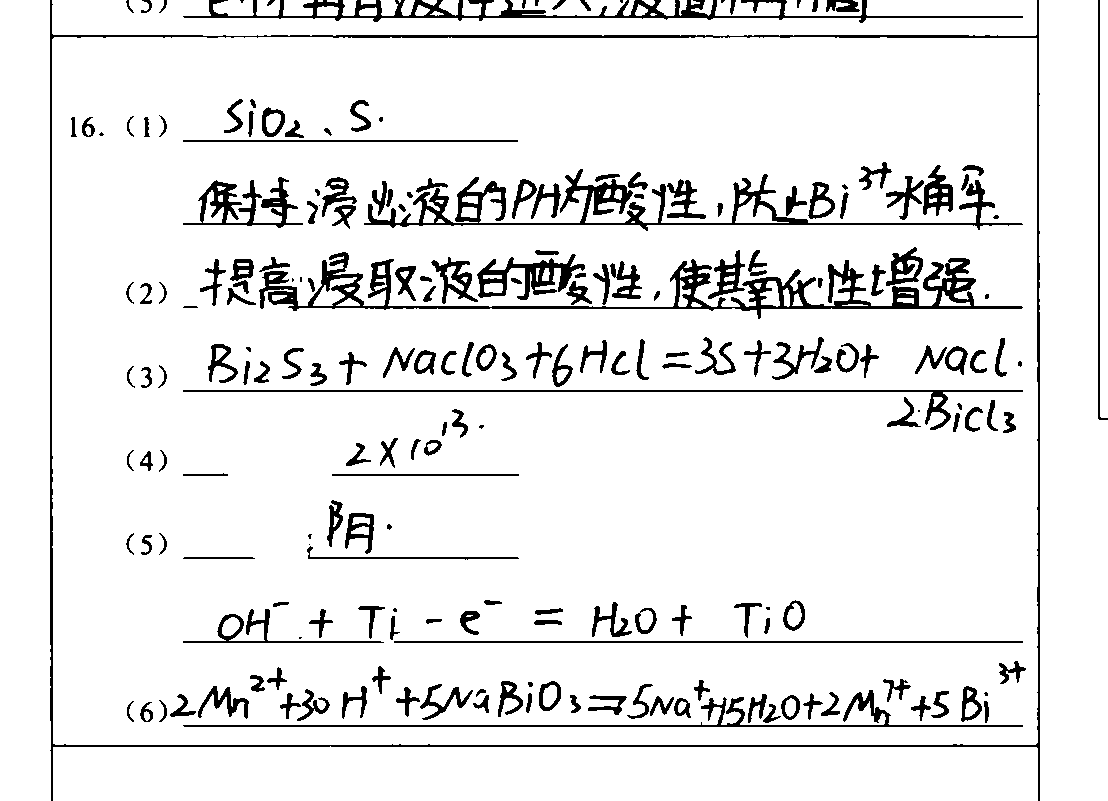 16.（1）SiO₂、S.
保持浸出液的PH为酸性,防止Bi³⁺水解.
（2）提高浸取液的酸性,使其氧化性增强.
（3）Bi₂S₃+NaClO₃+6HCl=3S+3H₂O+ NaCl.
2BiCl₃
（4）2×10¹³.
（5）;阴.
OH⁻+Ti-e⁻=H₂O+TiO
（6）2Mn²⁺+30H⁺+5NaBiO₃=5Na⁺+15H₂O+2Mn⁷⁺+5Bi³⁺